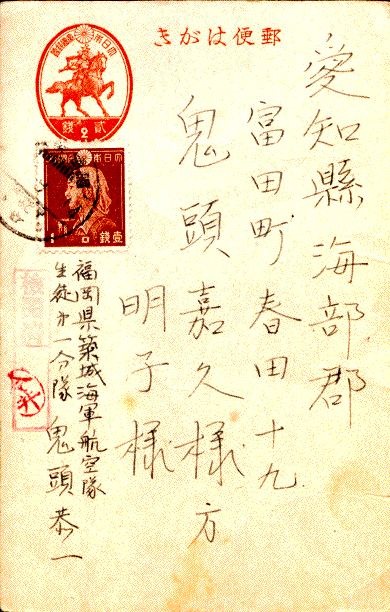 郵便はがき
愛知縣海部郡
富田町春田十九
鬼頭嘉久様方
明子様
大日本帝國郵便
貳錢
2
大日本帝國郵便
壹錢
福岡県築城海軍航空隊
生徒第一分隊 鬼頭恭一